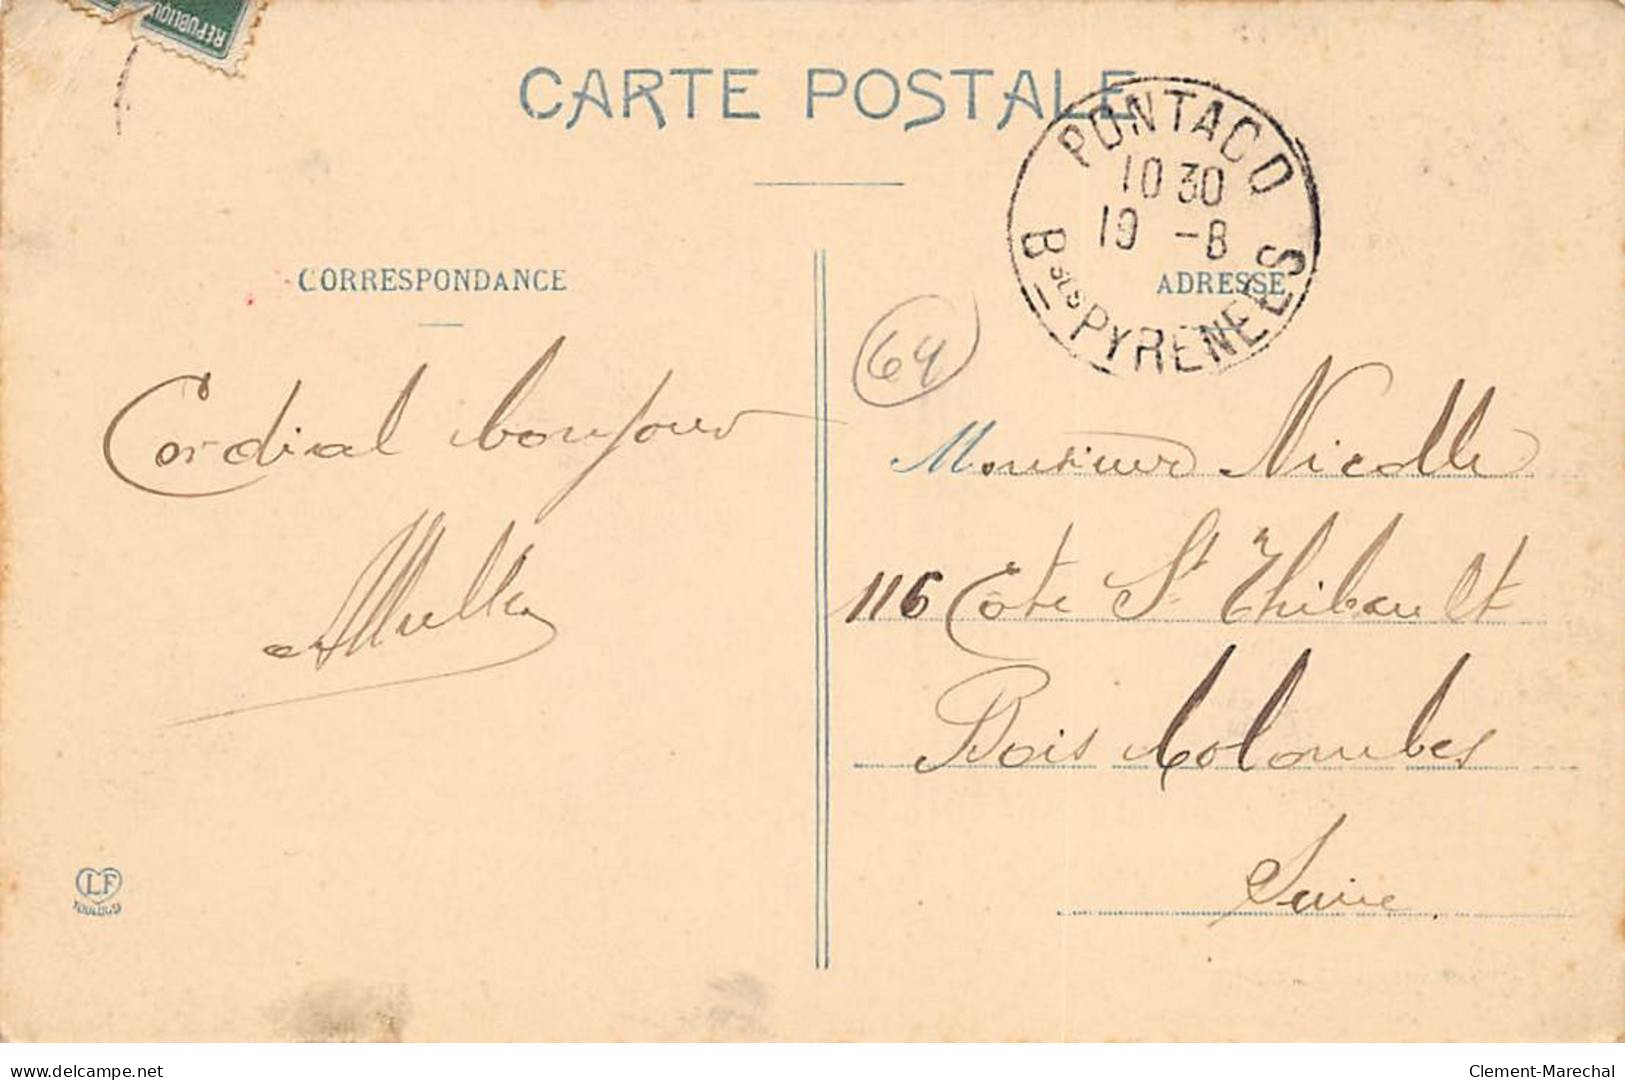 REPUBLIQUE
CARTE POSTALE
PONTACQ
10 30
19 -8
Bses PYRENEES
CORRESPONDANCE
ADRESSE
64
Cordial bonjour
Monsieur Nicolle
116 Côte St Thibault
Bois Colombes
Seine.
LF
TOULOUSE
delcampe.net
Clement-Marechal